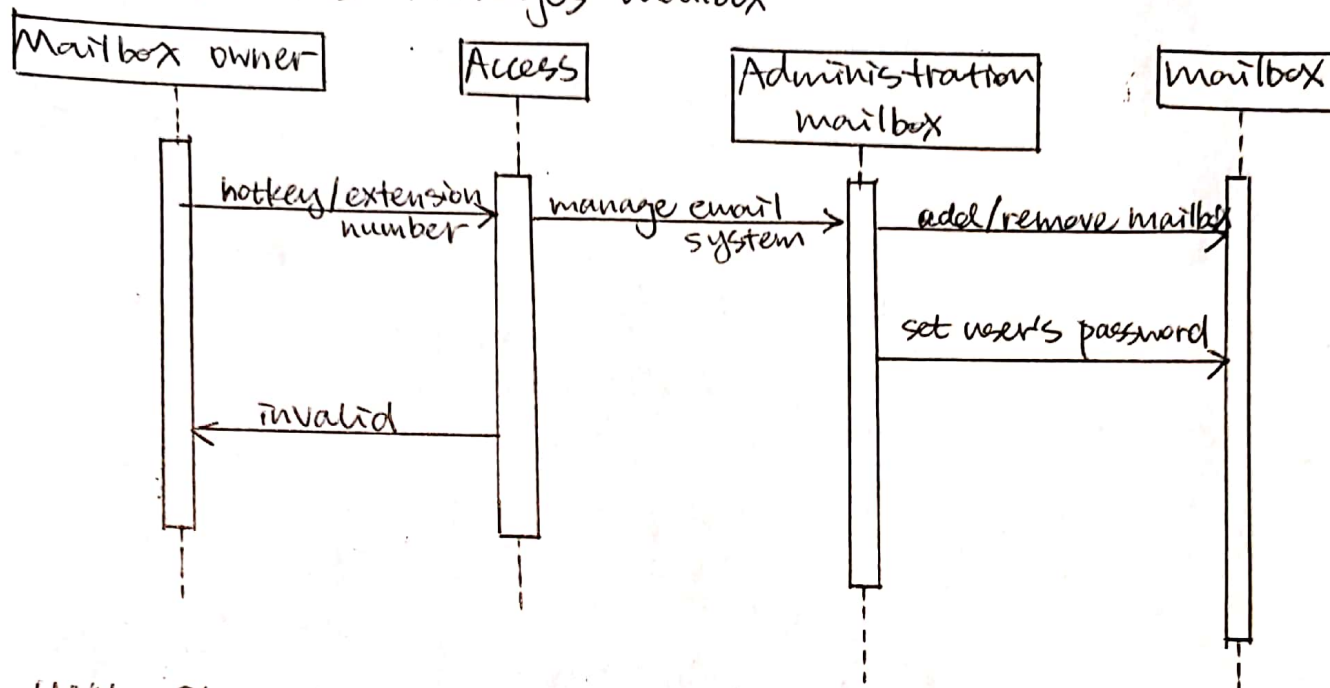 mailbox
Mailbox owner
Access
Administration
mailbox
mailbox
hotkey/extension
number
manage email
system
add/remove mailbox
set user's password
invalid